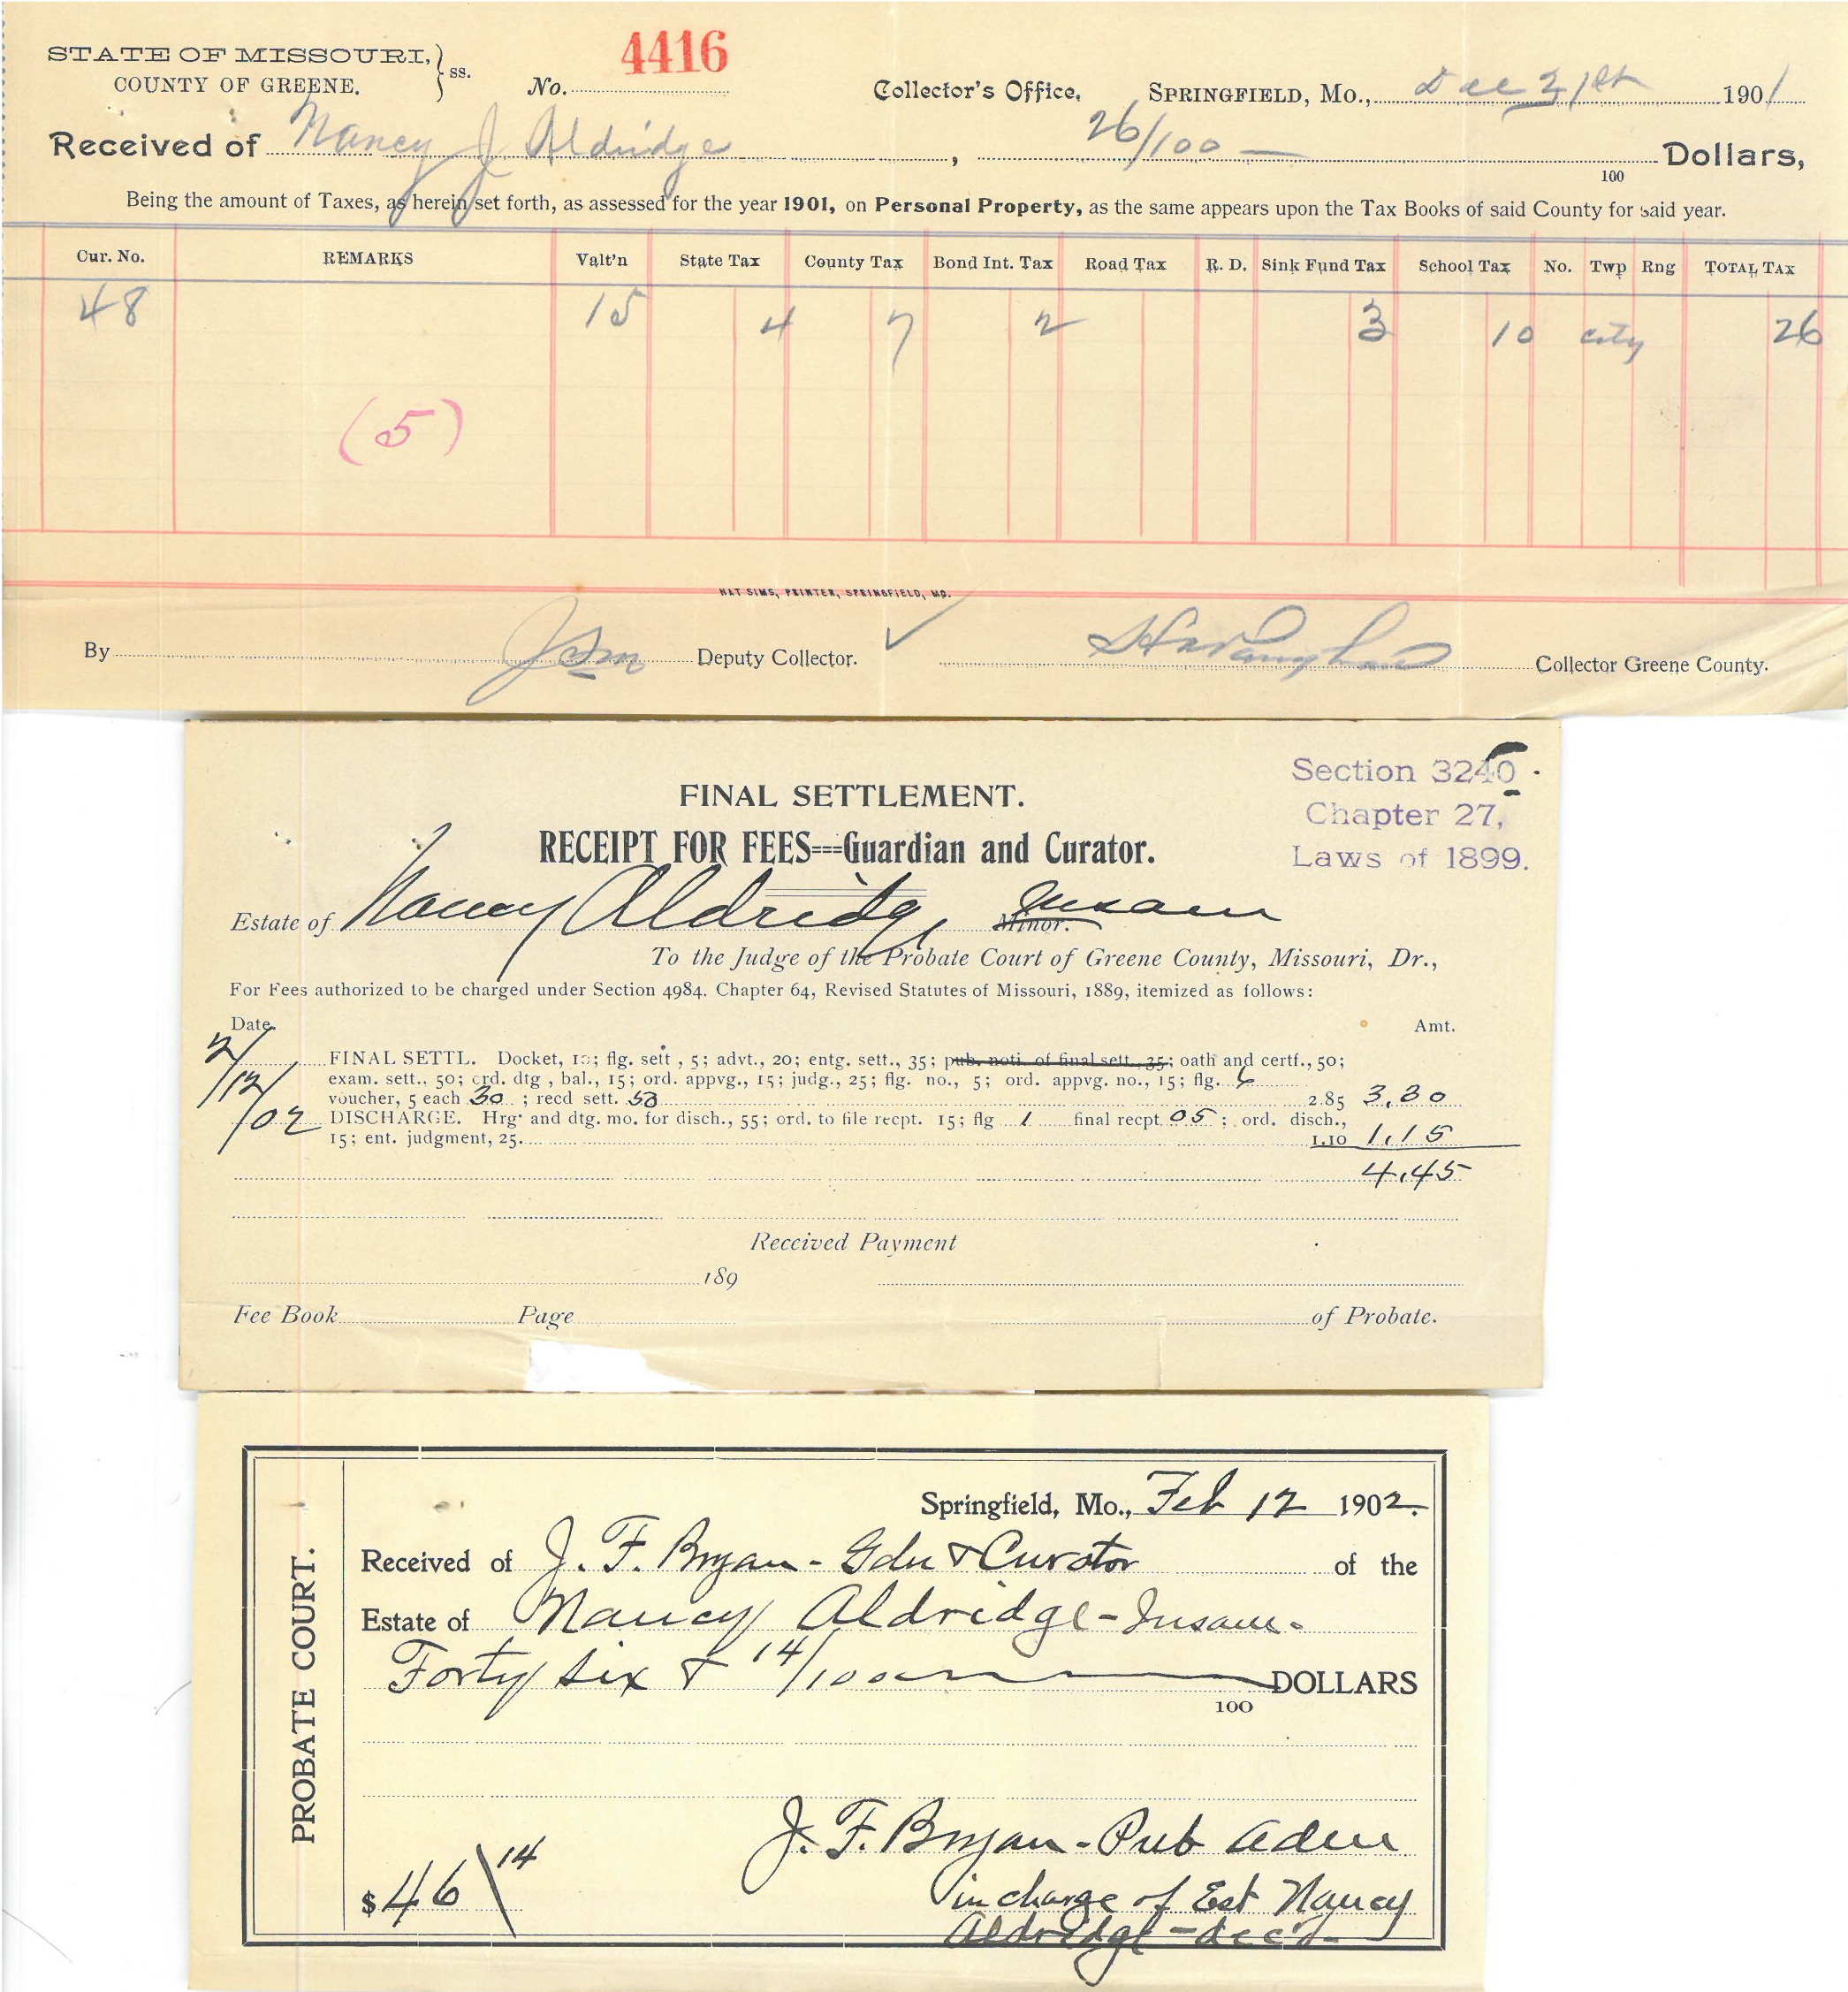 STATE OF MISSOURI, } ss.
COUNTY OF GREENE.
No. 4416
Collector's Office, SPRINGFIELD, Mo., Dec 31st 1901
Received of Nancy J Aldridge, 26/100 — Dollars,
100
Being the amount of Taxes, as herein set forth, as assessed for the year 1901, on Personal Property, as the same appears upon the Tax Books of said County for said year.
Cur. No. REMARKS Valt'n State Tax County Tax Bond Int. Tax Road Tax R. D. Sink Fund Tax School Tax No. Twp Rng TOTAL TAX
48 15 4 7 2 3 10 city 26
(5)
HAT SIMS, PRINTER, SPRINGFIELD, MO.
By Deputy Collector. ✓ Collector Greene County.
Section 3240.
Chapter 27,
Laws of 1899.
FINAL SETTLEMENT.
RECEIPT FOR FEES===Guardian and Curator.
Estate of Nancy Aldridge, Minor. Insane
To the Judge of the Probate Court of Greene County, Missouri, Dr.,
For Fees authorized to be charged under Section 4984. Chapter 64, Revised Statutes of Missouri, 1889, itemized as follows:
Date Amt.
2/12/02
FINAL SETTL. Docket, 10; flg. sett, 5; advt., 20; entg. sett., 35; pub. noti. of final sett., 35; oath and certf., 50;
exam. sett., 50; ord. dtg, bal., 15; ord. appvg., 15; judg., 25; flg. no., 5; ord. appvg. no., 15; flg. 6
voucher, 5 each 30; recd sett. 50 2.85 3.30
DISCHARGE. Hrg and dtg. mo. for disch., 55; ord. to file recpt. 15; flg 1 final recpt 05; ord. disch.,
15; ent. judgment, 25. 1.10 1.15
4.45
Received Payment
189
Fee Book Page of Probate.
PROBATE COURT.
Springfield, Mo., Feb 12 1902.
Received of J. F. Bryan - Gdn & Curator of the
Estate of Nancy Aldridge - Insane.
Forty six & 14/100 DOLLARS
100
J. F. Bryan - Pub Adm
$46\14 in charge of Est Nancy
Aldridge - dec'd -